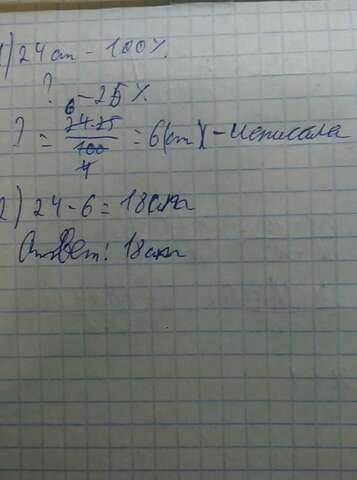 1) 24 ст - 100%.
? - 25%.
6
? = 24·25 / 100 = 6(ст) - исписала
4
2) 24 - 6 = 18
Ответ: 18